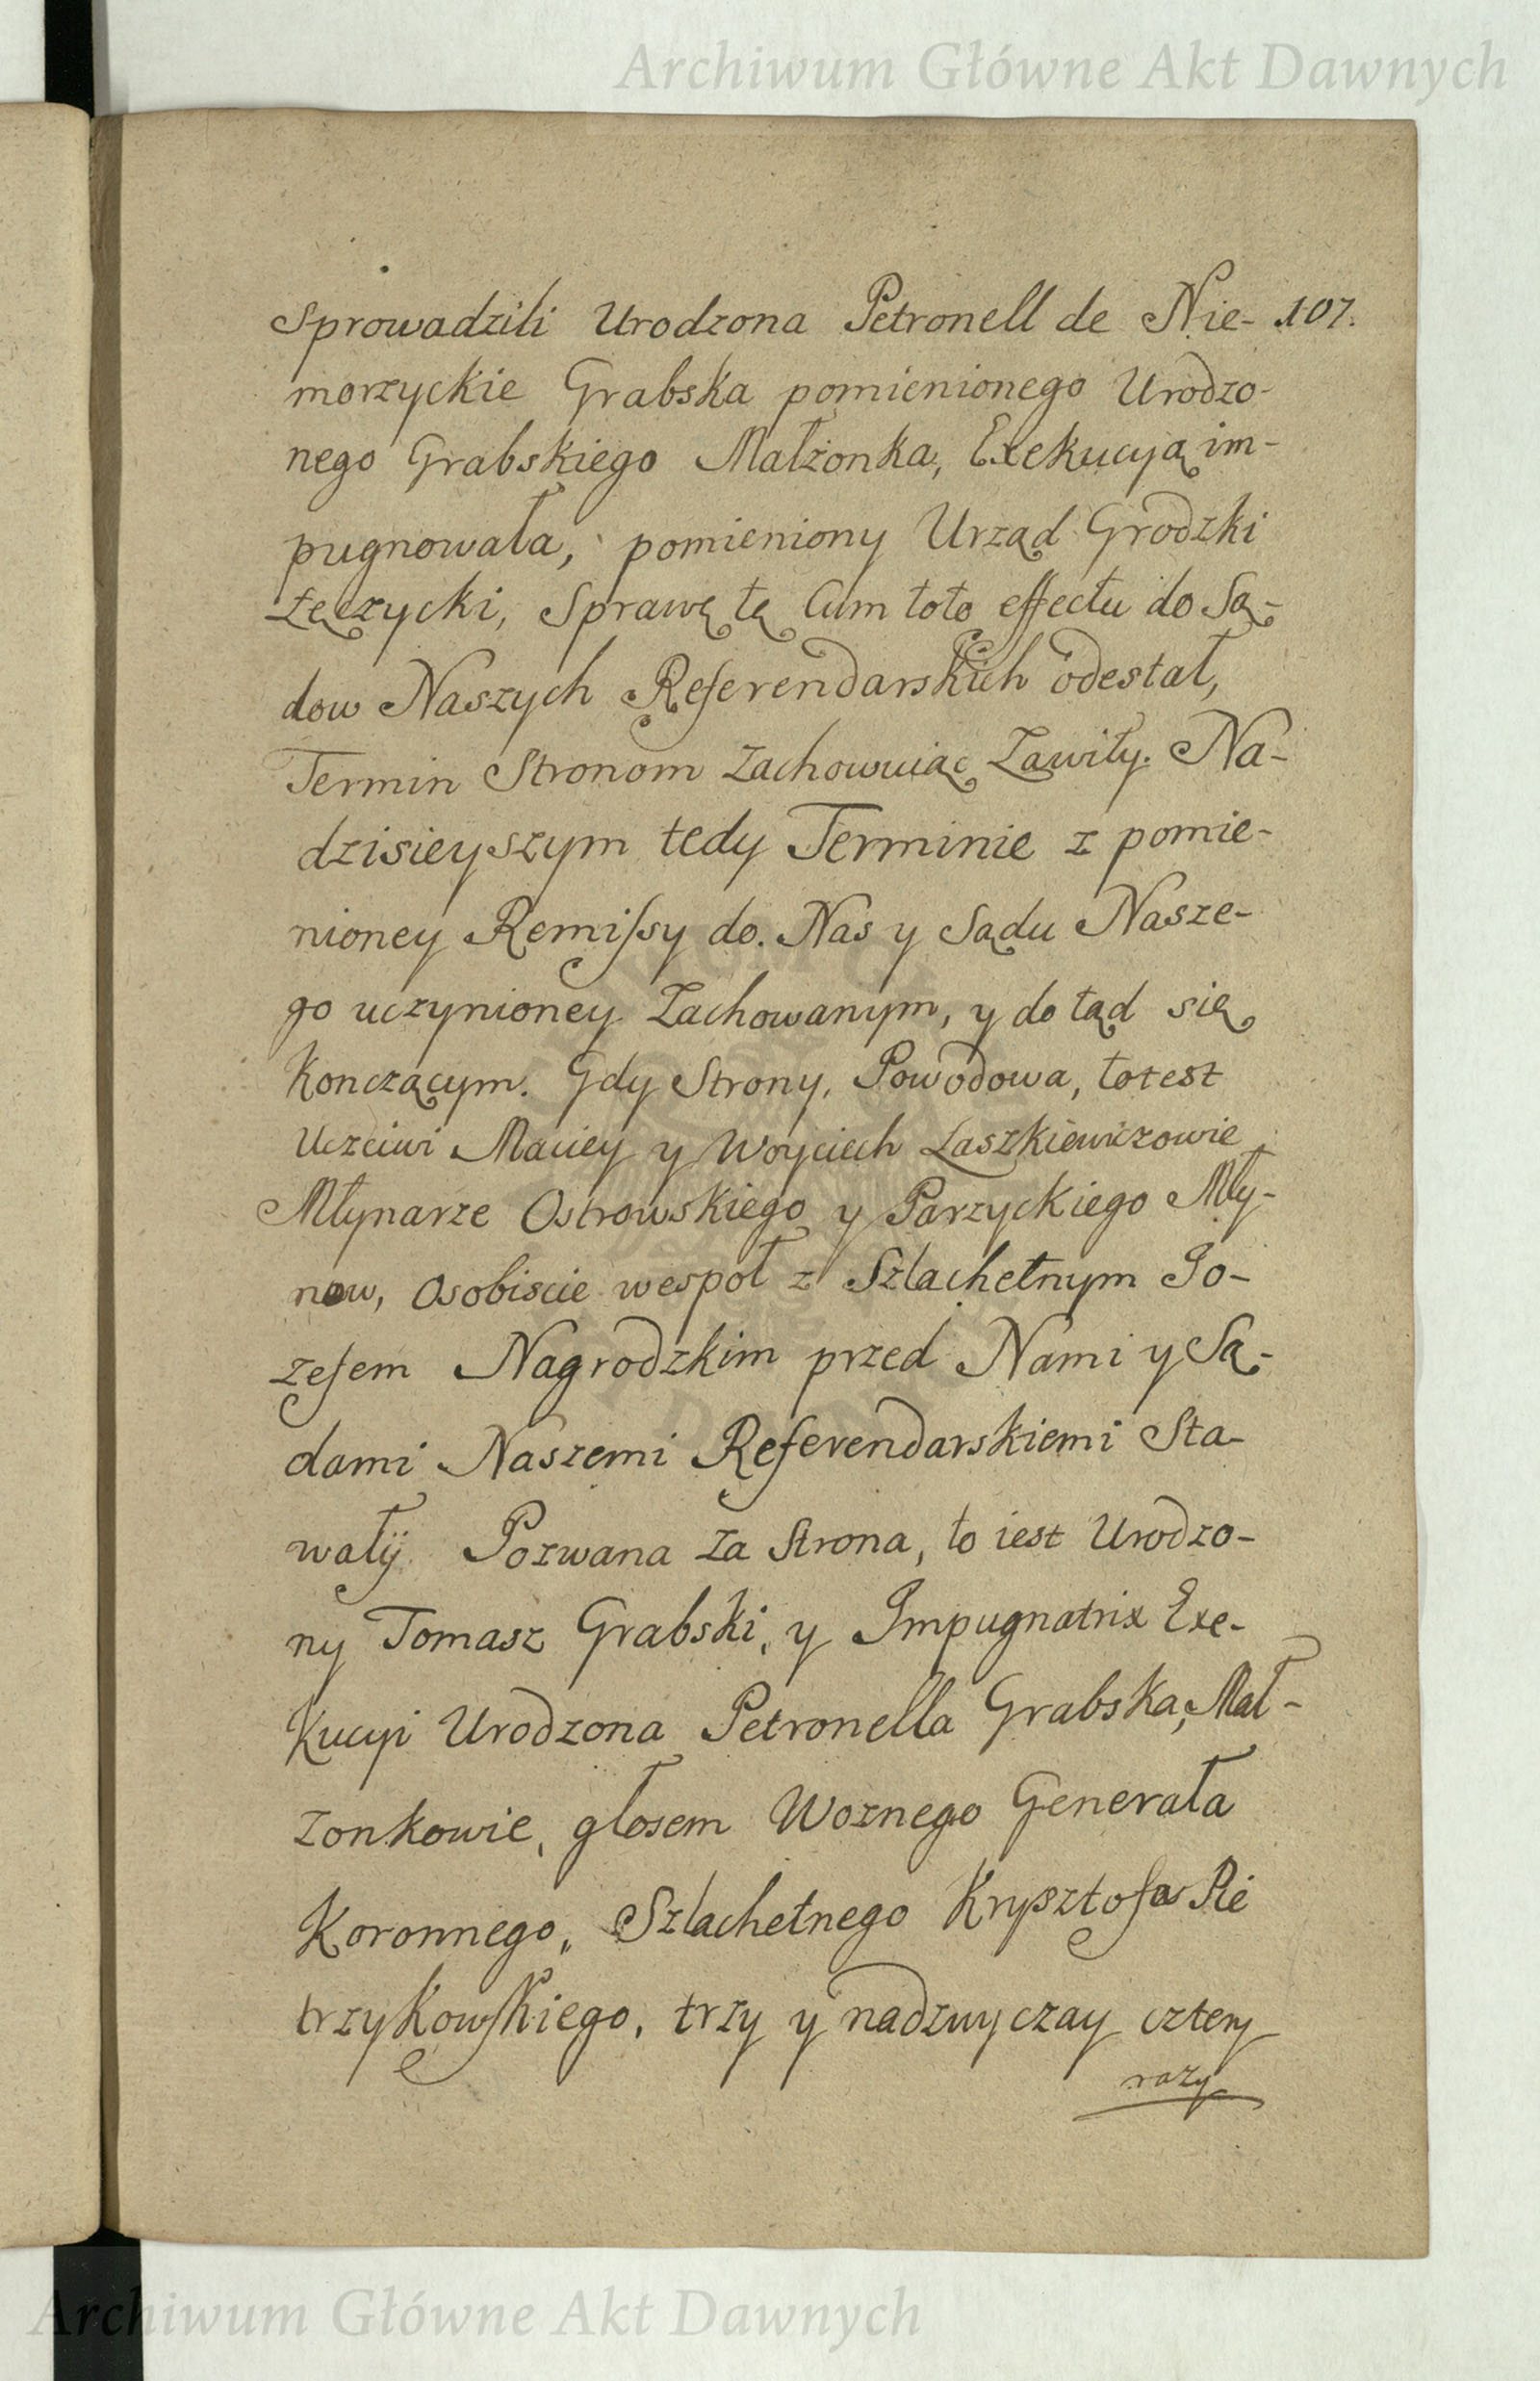 Archiwum Główne Akt Dawnych
Sprowadzili Urodzona Petronell de Nie- 107.
morzyckie Grabska pomienionego Urodzo-
nego Grabskiego Małżonka, Exekucyą im-
pugnowała, pomieniony Urząd Grodzki
Łęczycki, Sprawę tę Cum toto effectu do Są-
dow Naszych Referendarskich odesłał,
Termin Stronom Zachowuiąc Zawiły. Na-
dzisieyszym tedy Terminie z pomie-
nioney Remissy do Nas y Sądu Nasze-
go uczynioney Zachowanym, y do tąd się
Konczącym. Gdy Strony, Powodowa, to iest
Uczciwi Maciey y Woyciech Laszkiewiczowie
Młynarze Ostrowskiego y Parzyckiego Mły-
now, Osobiscie wespoł z Szlachetnym Jo-
zefem Nagrodzkim przed Nami y Są-
dami Naszemi Referendarskiemi Sta-
wały. Pozwana Za Strona, to iest Urodzo-
ny Tomasz Grabski, y Impugnatrix Exe-
Kucyi Urodzona Petronella Grabska, Mał-
zonkowie, głosem Woznego Generała
Koronnego, Szlachetnego Krysztofa Pie
trzykowskiego, trzy y nadzwyczay cztery
razy
Archiwum Główne Akt Dawnych